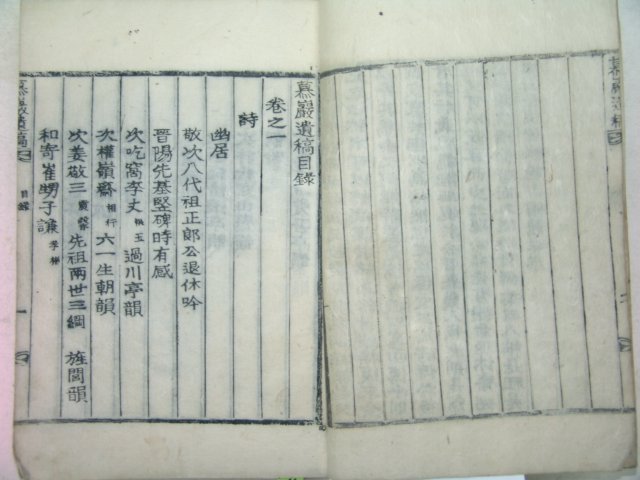 慕巖遺稿
慕巖遺稿目錄
卷之一
詩
幽居
敬次八代祖正郎公退休吟
晋陽先基竪碑時有感
次吃窩李丈 玉 過川亭韻
次權嶺齋 相行 六一生朝韻
次姜敬三 先祖兩世三綱 旌閭韻
和寄崔甥子謙
慕巖遺稿
目錄
一